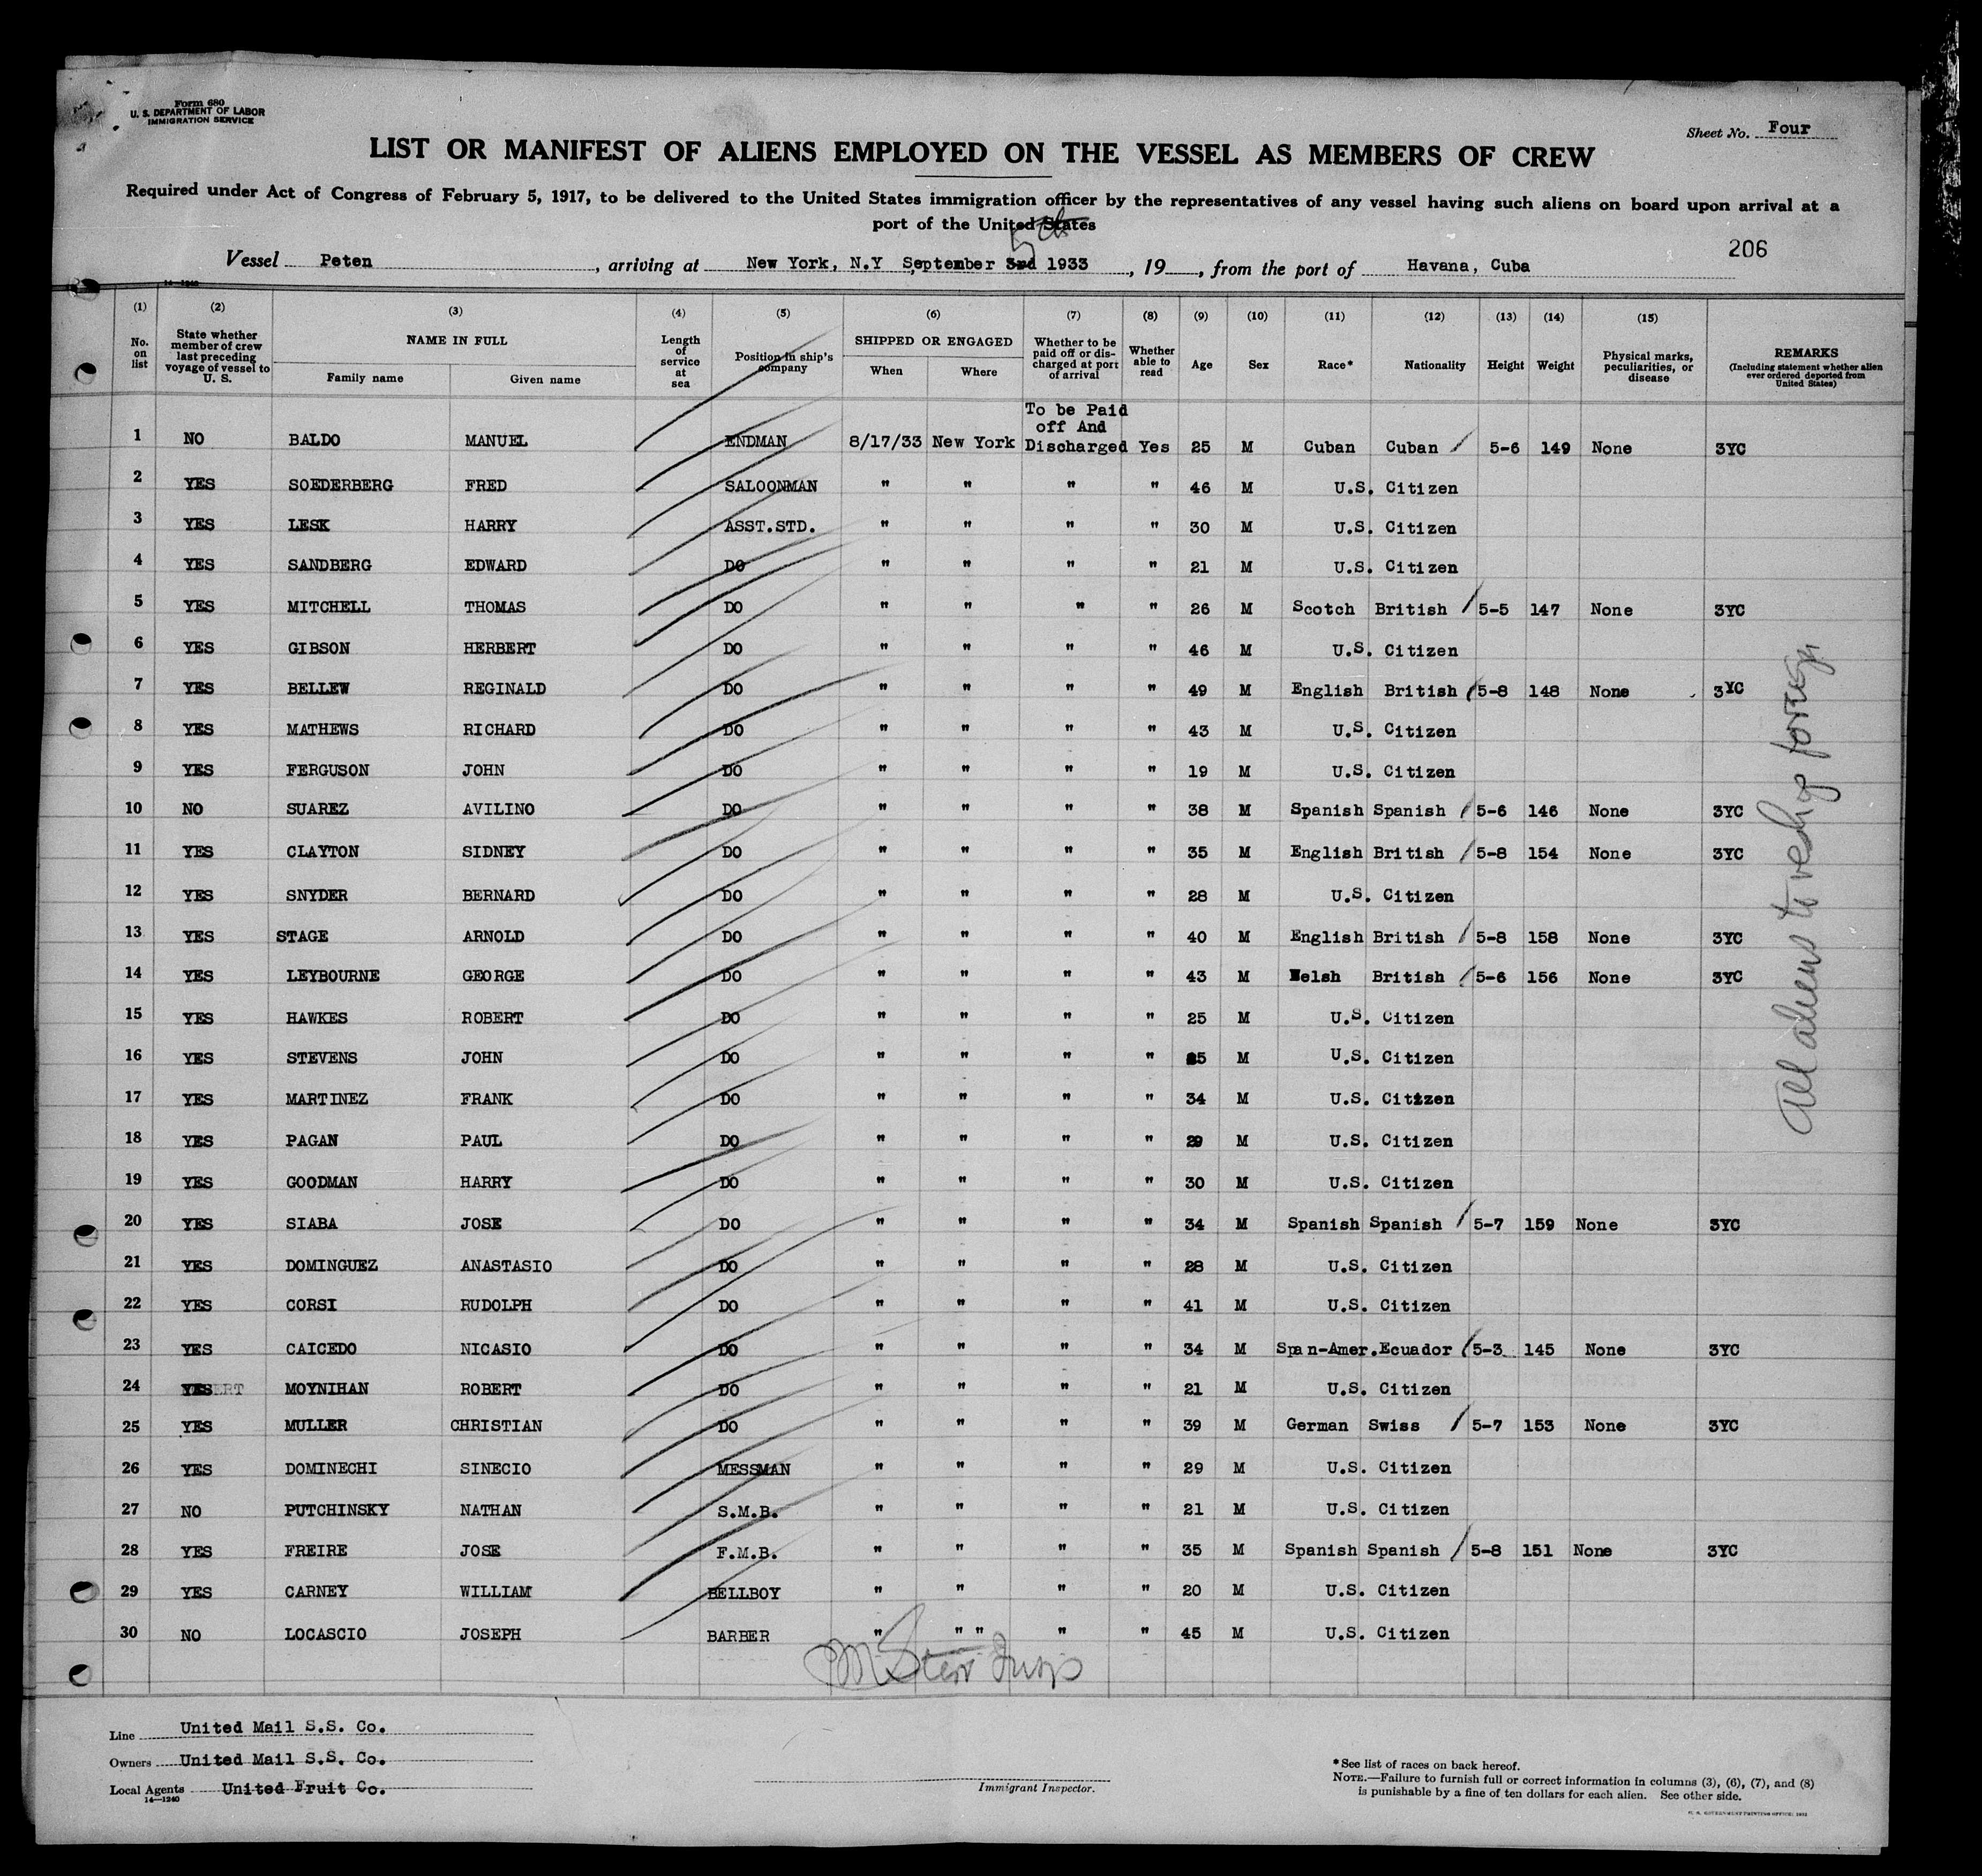 Form 680
U. S. DEPARTMENT OF LABOR
IMMIGRATION SERVICE
Sheet No. Four
LIST OR MANIFEST OF ALIENS EMPLOYED ON THE VESSEL AS MEMBERS OF CREW
Required under Act of Congress of February 5, 1917, to be delivered to the United States immigration officer by the representatives of any vessel having such aliens on board upon arrival at a
port of the United States
5th
206
Vessel Peten, arriving at New York, N.Y. September 3rd 1933, 19, from the port of Havana, Cuba
14-1240
(1) (2) (3) (4) (5) (6) (7) (8) (9) (10) (11) (12) (13) (14) (15)
No. on list State whether member of crew last preceding voyage of vessel to U. S. NAME IN FULL Family name Given name Length of service at sea Position in ship's company SHIPPED OR ENGAGED When Where Whether to be paid off or discharged at port of arrival Whether able to read Age Sex Race* Nationality Height Weight Physical marks, peculiarities, or disease REMARKS (Including statement whether alien ever ordered deported from United States)
1 NO BALDO MANUEL ENDMAN 8/17/33 New York To be Paid off And Discharged Yes 25 M Cuban Cuban 5-6 149 None 3YC
2 YES SOEDERBERG FRED SALOONMAN " " " " 46 M U.S. Citizen
3 YES LESK HARRY ASST.STD. " " " " 30 M U.S. Citizen
4 YES SANDBERG EDWARD DO " " " " 21 M U.S. Citizen
5 YES MITCHELL THOMAS DO " " " " 26 M Scotch British 5-5 147 None 3YC
6 YES GIBSON HERBERT DO " " " " 46 M U.S. Citizen
7 YES BELLEW REGINALD DO " " " " 49 M English British 5-8 148 None 3YC
8 YES MATHEWS RICHARD DO " " " " 43 M U.S. Citizen
9 YES FERGUSON JOHN DO " " " " 19 M U.S. Citizen
10 NO SUAREZ AVILINO DO " " " " 38 M Spanish Spanish 5-6 146 None 3YC
11 YES CLAYTON SIDNEY DO " " " " 35 M English British 5-8 154 None 3YC
12 YES SNYDER BERNARD DO " " " " 28 M U.S. Citizen
13 YES STAGE ARNOLD DO " " " " 40 M English British 5-8 158 None 3YC
14 YES LEYBOURNE GEORGE DO " " " " 43 M Welsh British 5-6 156 None 3YC
15 YES HAWKES ROBERT DO " " " " 25 M U.S. Citizen
16 YES STEVENS JOHN DO " " " " M U.S. Citizen
17 YES MARTINEZ FRANK DO " " " " 34 M U.S. Citizen
18 YES PAGAN PAUL DO " " " " 29 M U.S. Citizen
19 YES GOODMAN HARRY DO " " " " 30 M U.S. Citizen
20 YES SIABA JOSE DO " " " " 34 M Spanish Spanish 5-7 159 None 3YC
21 YES DOMINGUEZ ANASTASIO DO " " " " 28 M U.S. Citizen
22 YES CORSI RUDOLPH DO " " " " 41 M U.S. Citizen
23 YES CAICEDO NICASIO DO " " " " 34 M Span-Amer. Ecuador 5-3 145 None 3YC
24 YES MOYNIHAN ROBERT DO " " " " 21 M U.S. Citizen
25 YES MULLER CHRISTIAN DO " " " " 39 M German Swiss 5-7 153 None 3YC
26 YES DOMINECHI SINECIO MESSMAN " " " " 29 M U.S. Citizen
27 NO PUTCHINSKY NATHAN S.M.B. " " " " 21 M U.S. Citizen
28 YES FREIRE JOSE F.M.B. " " " " 35 M Spanish Spanish 5-8 151 None 3YC
29 YES CARNEY WILLIAM BELLBOY " " " " 20 M U.S. Citizen
30 NO LOCASCIO JOSEPH BARBER " " " " " 45 M U.S. Citizen
All aliens to reship foreign
Line United Mail S.S. Co.
Owners United Mail S.S. Co.
Local Agents United Fruit Co.
14-1240
Immigrant Inspector.
*See list of races on back hereof.
NOTE.—Failure to furnish full or correct information in columns (3), (6), (7), and (8)
is punishable by a fine of ten dollars for each alien. See other side.